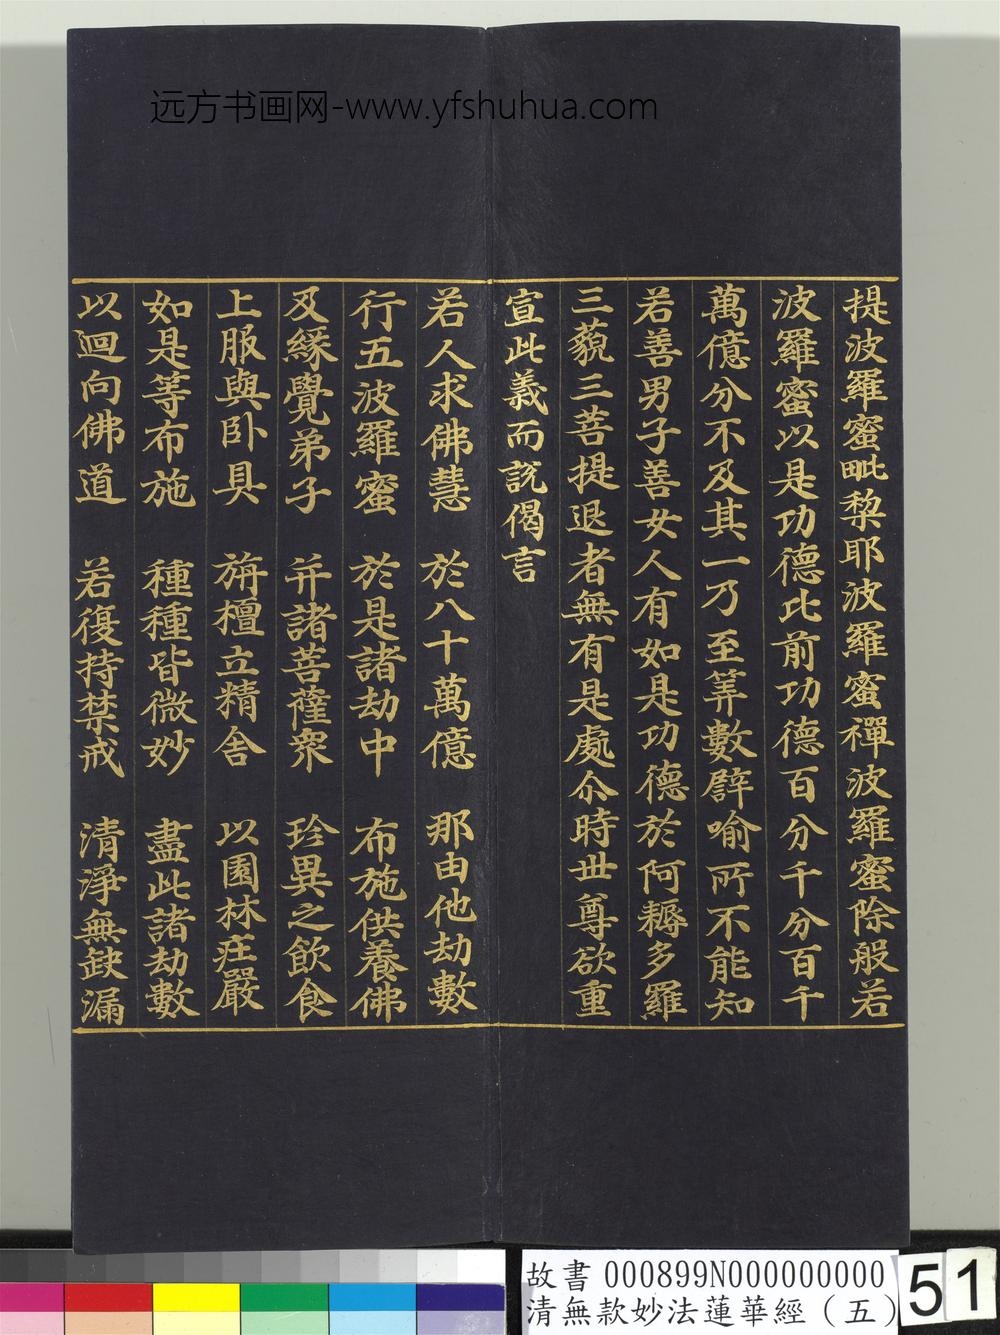 远方书画网-www.yfshuhua.com
提波羅蜜毗梨耶波羅蜜禪波羅蜜除般若
波羅蜜以是功德比前功德百分千分百千
萬億分不及其一乃至筭數譬喻所不能知
若善男子善女人有如是功德於阿耨多羅
三藐三菩提退者無有是處尒時世尊欲重
宣此義而說偈言
若人求佛慧　於八十萬億　那由他劫數
行五波羅蜜　於是諸劫中　布施供養佛
及緣覺弟子　并諸菩薩衆　珍異之飲食
上服與卧具　旃檀立精舍　以園林莊嚴
如是等布施　種種皆微妙　盡此諸劫數
以迴向佛道　若復持禁戒　清淨無缺漏
故書 000899N000000000
清無款妙法蓮華經（五）
51